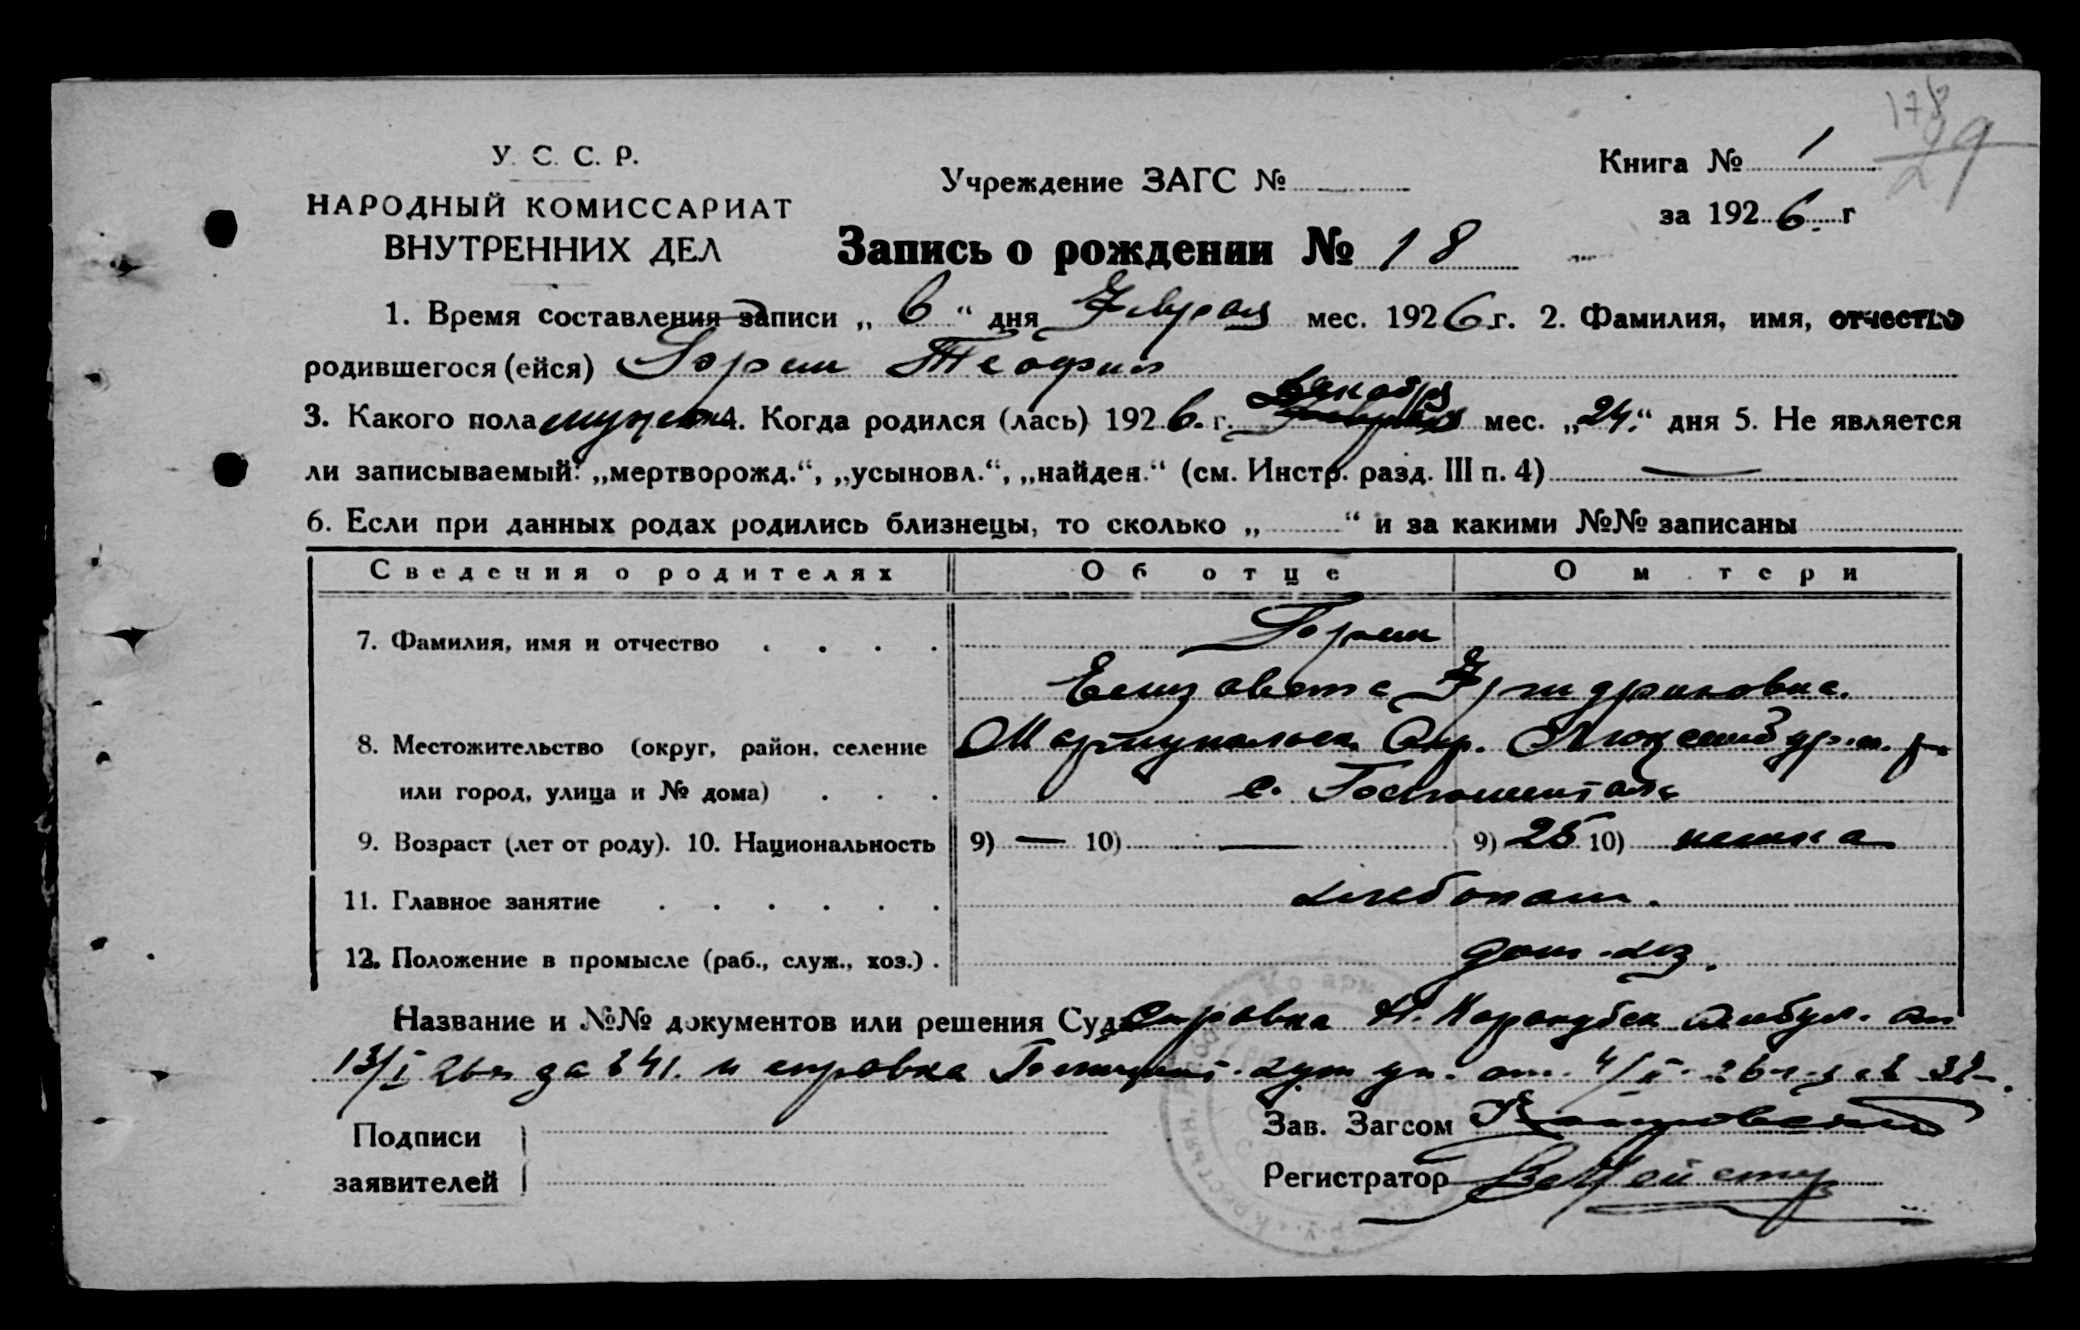 178
29
У. С. С. Р.
НАРОДНЫЙ КОМИССАРИАТ
ВНУТРЕННИХ ДЕЛ
Учреждение ЗАГС №
Книга № 1
за 1926 г
Запись о рождении № 18
1. Время составления записи „ 6 “ дня Февраля мес. 1926 г. 2. Фамилия, имя, отчество
родившегося (ейся) Теофил
3. Какого пола мужск 4. Когда родился (лась) 1926. г. Декабря мес. „24.“ дня 5. Не является
ли записываемый: „мертворожд.“, „усыновл.“, „найден.“ (см. Инстр. разд. III п. 4) —
6. Если при данных родах родились близнецы, то сколько „ “ и за какими №№ записаны
Сведения о родителях Об отце О м тери
7. Фамилия, имя и отчество
Елизавета Фридриховна.
8. Местожительство (округ, район, селение Мариупольск. Окр. Люксембург. р.
или город, улица и № дома) с.
9. Возраст (лет от роду). 10. Национальность 9) — 10) — 9) 25 10) немка
11. Главное занятие хлебопаш.
12. Положение в промысле (раб., служ., хоз.) дом. хоз.
Название и №№ документов или решения Суда справка Н. Каракубск. амбул. от
13/I 26 г за № 41. и справка от 4/II 26 г.
Подписи
заявителей
Зав. Загсом
Регистратор